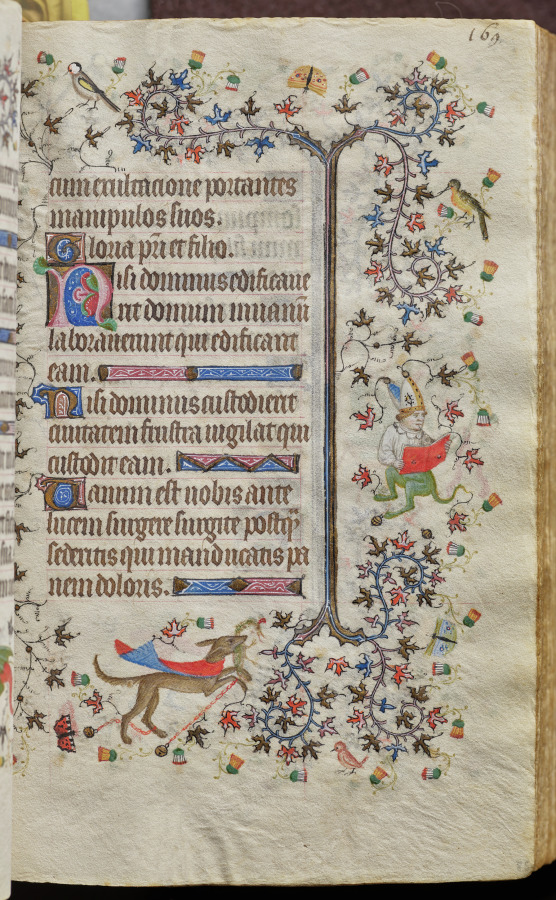 169
cum exultacione portantes
manipulos suos.
Gloria pri et filio.
Nisi dominus edificaue
rit domum in uanũ
laborauerunt qui edificant
eam.
Nisi dominus custodierit
ciuitatem frustra uigilat qui
custodit eam.
Uanum est uobis ante
lucem surgere surgite postq̃
sederitis qui manducatis pa
nem doloris.